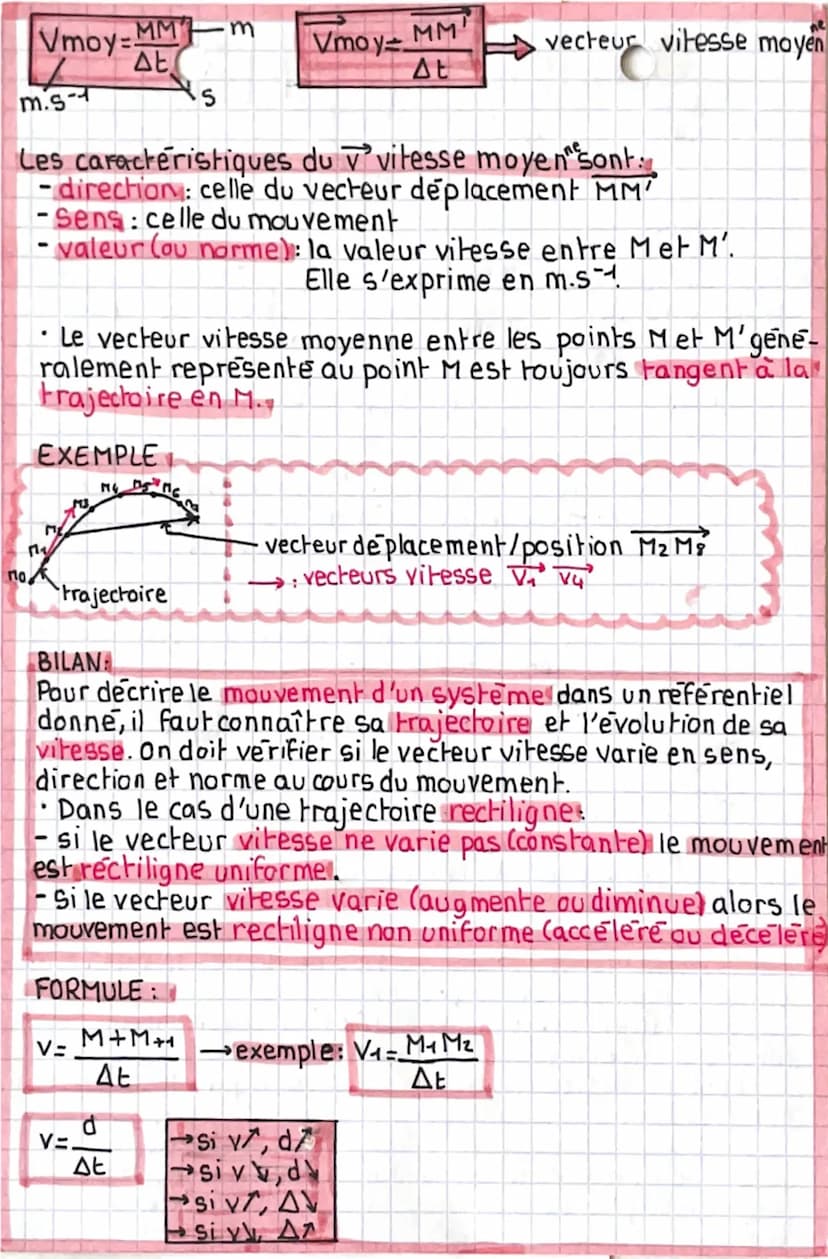 Vmoy = MM' / Δt
m
m.s⁻¹
s
Vmoy = MM' / Δt → vecteur vitesse moyenne
Les caractéristiques du v vitesse moyenne sont:
- direction: celle du vecteur déplacement MM'
- Sens : celle du mouvement
- valeur (ou norme): la valeur vitesse entre M et M'.
Elle s'exprime en m.s⁻¹.
· Le vecteur vitesse moyenne entre les points M et M' géné-
ralement représenté au point M est toujours tangent à la
trajectoire en M.
EXEMPLE
M0
M1
M2
M3
M4
M5
M6
trajectoire
vecteur déplacement/position M2 M8
→ : vecteurs vitesse V1 V4
BILAN:
Pour décrire le mouvement d'un système dans un référentiel
donné, il faut connaître sa trajectoire et l'évolution de sa
vitesse. On doit vérifier si le vecteur vitesse varie en sens,
direction et norme au cours du mouvement.
· Dans le cas d'une trajectoire rectiligne:
- si le vecteur vitesse ne varie pas (constante) le mouvement
est rectiligne uniforme.
- Si le vecteur vitesse varie (augmente ou diminue) alors le
mouvement est rectiligne non uniforme (accéléré ou décéléré)
FORMULE :
V= M+M+1 / Δt → exemple: V1= M1 M2 / Δt
V= d / Δt
→ si v↗, d↗
→ si v↘, d↘
→ si v↗, Δ↘
→ si v↘, Δ↗